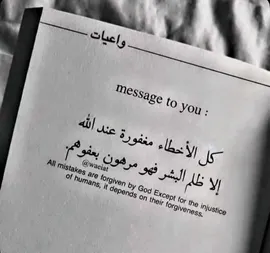 واعيات
message to you :
كل الأخطاء مغفورة عند الله
إلا ظلم البشر فهو مرهون بعفوهم.
@waciat
All mistakes are forgiven by God Except for the injustice
of humans, it depends on their forgiveness.